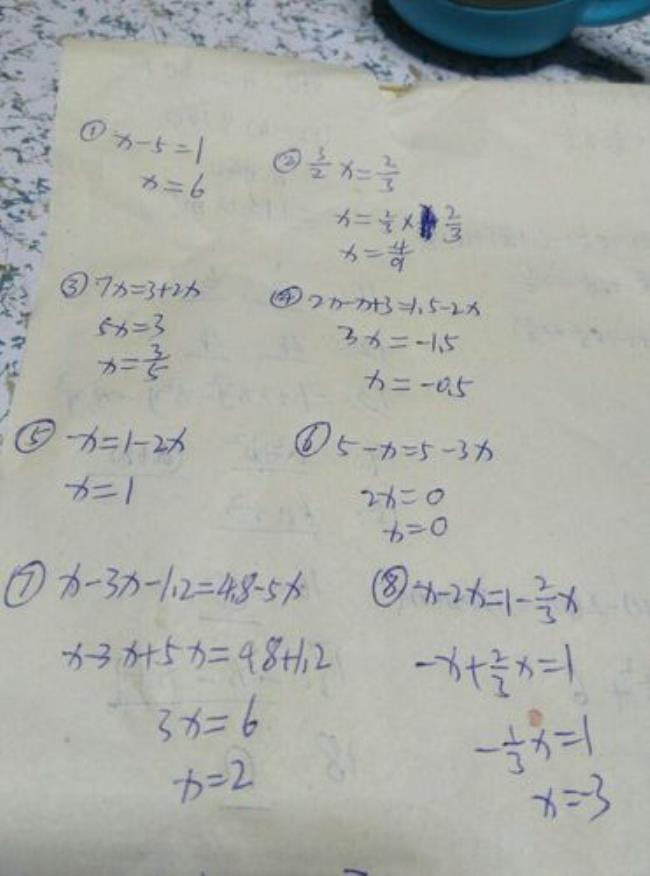 ① x-5=1
x=6
② 3/2 x=2/3
x=2/3×2/3
x=4/9
③ 7x=3+2x
5x=3
x=3/5
④ 2x-x+3=1.5-2x
3x=-1.5
x=-0.5
⑤ -x=1-2x
x=1
⑥ 5-x=5-3x
2x=0
x=0
⑦ x-3x-1.2=4.8-5x
x-3x+5x=4.8+1.2
3x=6
x=2
⑧ x-2x=1-2/3 x
-x+2/3 x=1
-1/3 x=1
x=-3